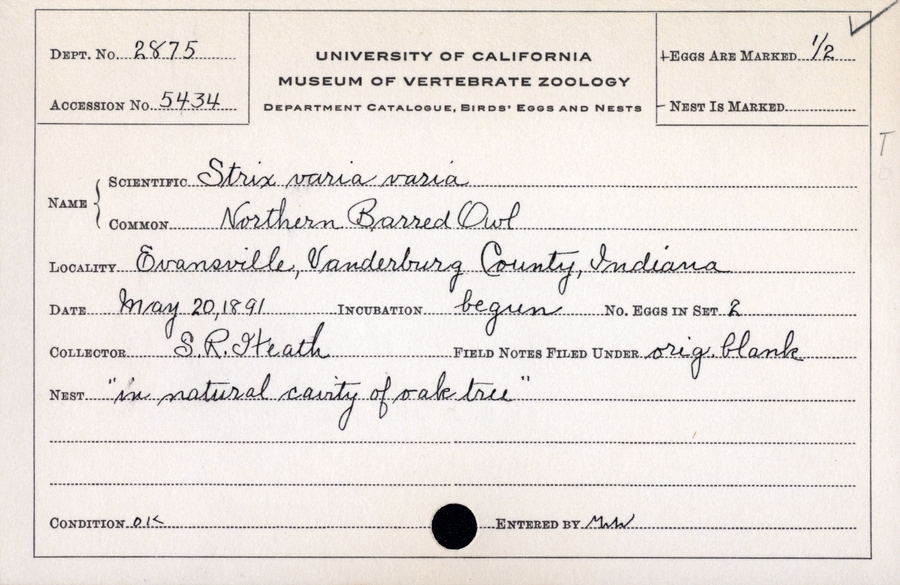 Dept. No. 2875
Accession No. 5434
UNIVERSITY OF CALIFORNIA
MUSEUM OF VERTEBRATE ZOOLOGY
Department Catalogue, Birds' Eggs and Nests
Eggs Are Marked 1/2
Nest Is Marked
T
Name
Scientific Strix varia varia
Common Northern Barred Owl
Locality Evansville, Vanderburg County, Indiana
Date May 20, 1891 Incubation begun No. Eggs in Set 2
Collector S.R. Heath Field Notes Filed Under orig. blank
Nest "in natural cavity of oak tree"
Condition OK Entered by